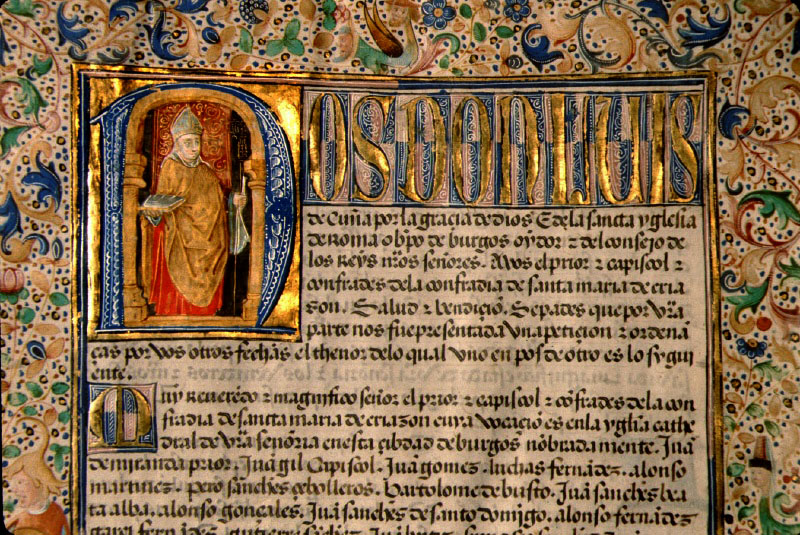 NOS DON LUIS
de Cuña por la gracia de dios E de la sancta yglesia
de Roma obpo de burgos oydor ⁊ del consejo de
los Reys nros señores. A vos el prior ⁊ capiscol ⁊
confrades de la confradia de santa maria de cria
son. Salud ⁊ bendiçio. Sepades que por vra
parte nos fue presentada vna peticion ⁊ ordena
cas por vos otros fechas el thenor de lo qual vno en pos de otro es lo sygui
ente.
Muy Reueredo ⁊ magnifico señor el prior ⁊ capiscol ⁊ cofrades de la con
fradia de sancta maria de criazon cuya vocacio es en la yglia cathe
dral de vra señoria en esta çibdad de burgos nobrada mente. Jua
de miranda prior. Jua gil Capiscol. Jua gomez. luchas fernadez. alonso
martines. Pero sanches çebolleros. Bartolome de busto. Jua sanches bea
ta alba. alonso gonçales. Jua sanches de santo domigo. alonso fernadez